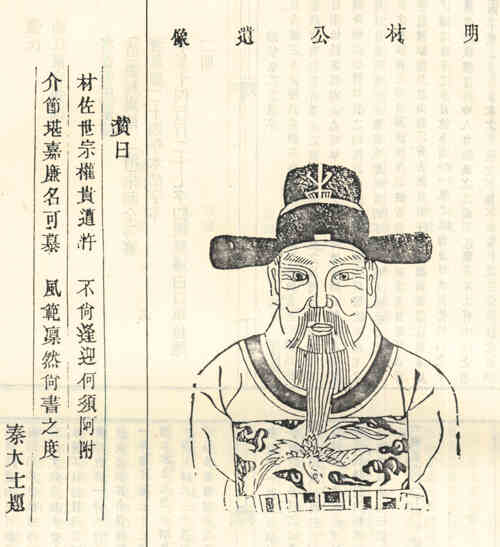 明材公遺像
贊曰
材佐世宗權貴遭忤 不尚逢迎何須阿附
介節堪嘉廉名可慕 風範凜然尚書之度
秦大士題